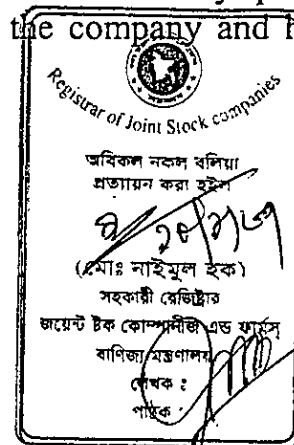 the company and h
Registrar of Joint Stock companies
অবিকল নকল বলিয়া
প্রত্যায়ন করা হইল
(মোঃ নাইমুল হক)
সহকারী রেজিস্ট্রার
জয়েন্ট ষ্টক কোম্পানীজ এন্ড ফার্মস
বাণিজ্য মন্ত্রণালয়
লেখক :
পাঠক :